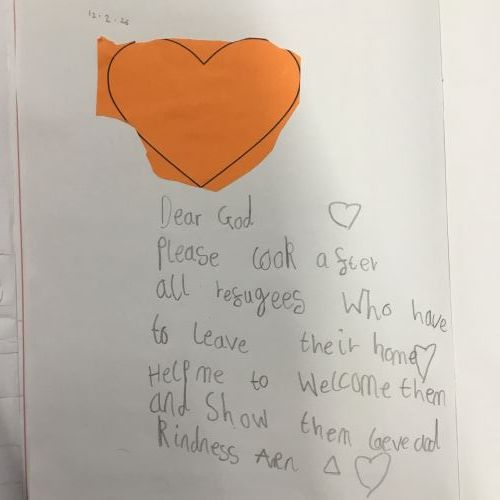 12.2.26
Dear God
Please look after
all refugees who have
to leave their home
Help me to welcome them
and show them
kindness Aen